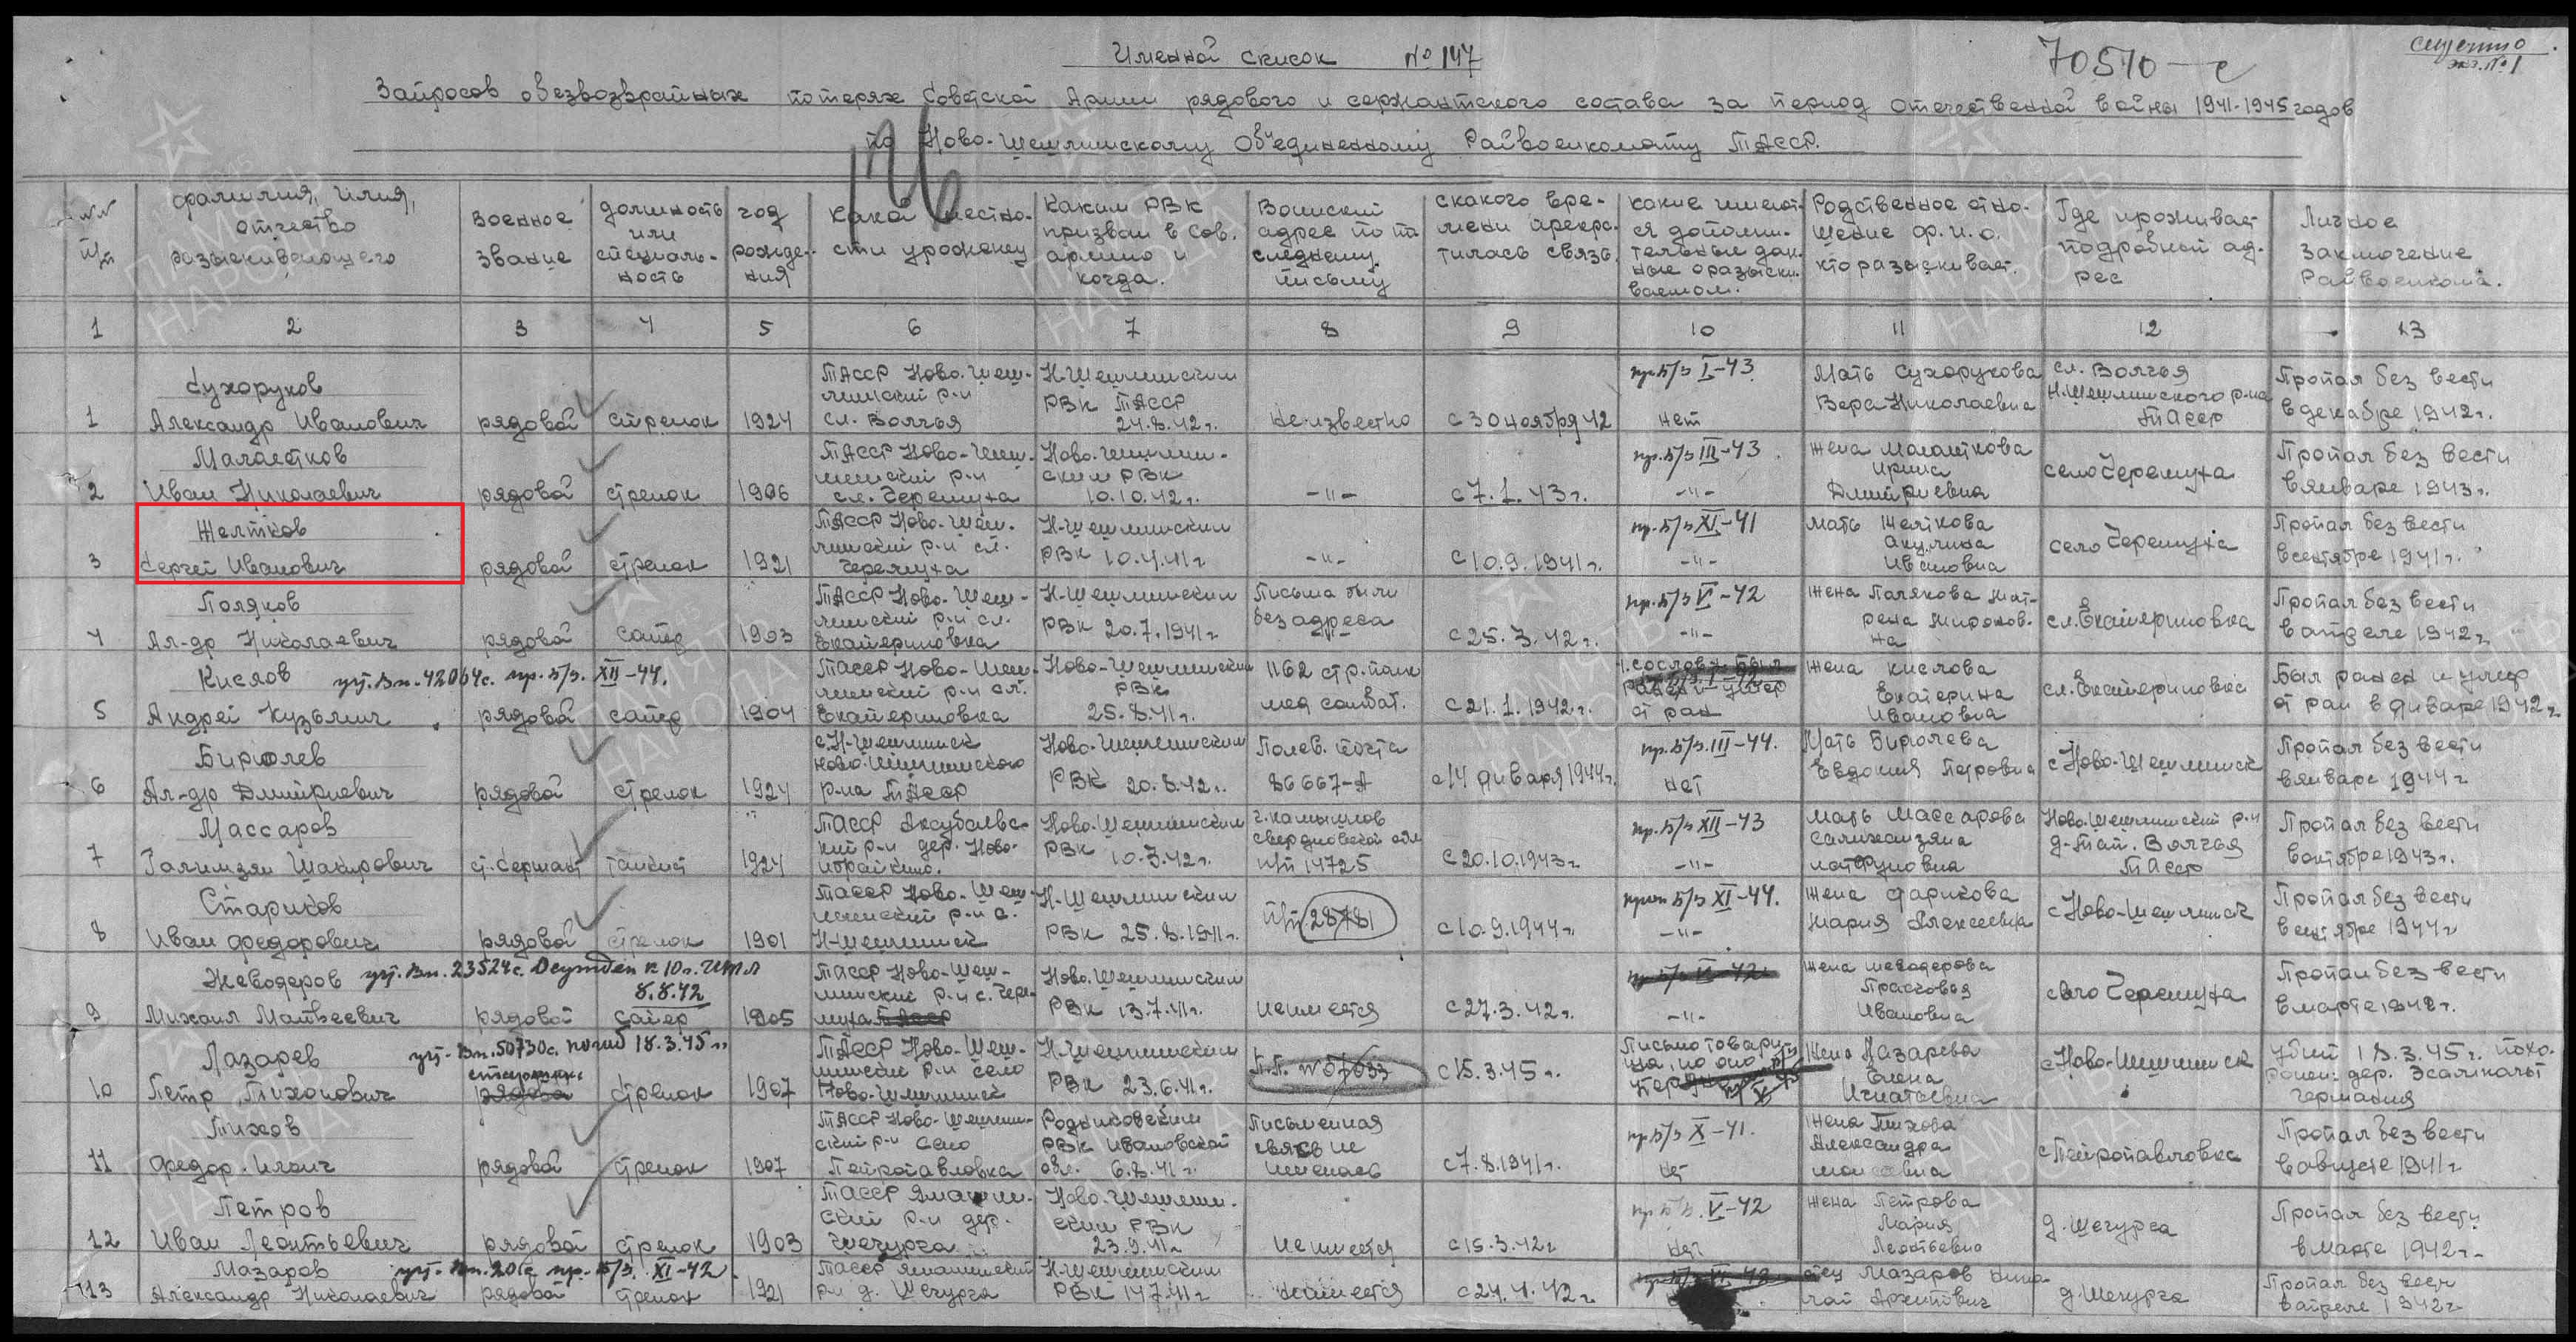 Именной список №147
70510-с
секретно
экз. №1
Запросов о безвозвратных потерях Советской Армии рядового и сержантского состава за период отечественной войны 1941-1945 годов
по Ново-Шешминскому Объединенному Райвоенкомату ТАССР.
№№ п/п
фамилия, имя, отчество разыскивающего
военное звание
должность или специаль-ность
год рожде-ния
Какой местно-сти уроженец
Каким РВК призван в Сов. армию и когда.
Воинский адрес по последнему письму
с какого вре-мени прекра-тилась связь.
какие имеют-ся дополни-тельные дан-ные о разыски-ваемом.
Родственное отно-шение ф.и.о. кто разыскивает.
Где проживает подробный ад-рес
Личное заключение Райвоенкома.
1 2 3 4 5 6 7 8 9 10 11 12 13
1 Сухоруков Александр Иванович рядовой стрелок 1924 ТАССР Ново-Шеш-минский р-н сл. Волчья Н-Шешминским РВК ТАССР 24.8.42г. неизвестно с 30 ноября 42 пр. б/в I-43 нет Мать Сухорукова Вера Николаевна сл. Волчья Н.Шешминского р-на ТАССР Пропал без вести в декабре 1942г.
2 Иван Николаевич рядовой стрелок 1906 ТАССР Ново-Шеш-минский р-н сл. Черемуха Ново-Шешмин-ским РВК 10.10.42г. -"- с 7.1.43г. пр. б/в III-43 -"- жена Ирина Дмитриевна село Черемуха Пропал без вести в январе 1943г.
3 Желтков Сергей Иванович рядовой стрелок 1921 ТАССР Ново-Шеш-минский р-н сл. Черемуха Н-Шешминским РВК 10.4.41г -"- с 10.9.1941г. пр. б/в XI-41 -"- мать Желткова Акулина Ивановна село Черемуха Пропал без вести в сентябре 1941г.
4 Поляков Ал-др Николаевич рядовой сапер 1903 ТАССР Ново-Шеш-минский р-н сл. Екатериновка Н-Шешминским РВК 20.7.1941г Письма были без адреса с 25.3.42г. пр. б/в V-42 -"- жена Полякова Мат-рена Миронов-на сл. Екатериновка Пропал без вести в апреле 1942г.
5 Кислов Андрей Кузьмич уч. Вп. 42064с. пр. б/в. XII-44. рядовой сапер 1904 ТАССР Ново-Шеш-минский р-н сл. Екатериновка Ново-Шешминским РВК 25.8.41г. 1162 стр. полк мед санбат. с 21.1.1942г. ранен и умер от ран жена Кислова Екатерина Ивановна сл. Екатериновка Был ранен и умер от ран в январе 1942г
6 Бирюлев Ал-др Дмитриевич рядовой стрелок 1924 с. Н-Шешминск Ново-Шешминского р-на ТАССР Ново-Шешминским РВК 20.8.42г. Полев. почта 86667-А с 14 января 1944г. пр. б/в. III-44. нет Мать Бирюлева Евдокия Петровна с Ново-Шешминск Пропал без вести в январе 1944г
7 Массаров Галимзян Шакирович ст. сержант танкист 1924 ТАССР Аксубаевс-кий р-н дер. Ново-Ибрайкино. Ново-Шешминским РВК 10.7.42г. г. Камышлов Свердловской обл п/п 14725 с 20.10.1943г пр. б/в XII-43 -"- мать Массарова Ново-Шешминский р-н д. Тат. Волчья ТАССР Пропал без вести в октябре 1943г.
8 Стариков Иван Федорович рядовой стрелок 1901 ТАССР Ново-Шеш-минский р-н с. Н-Шешминск Н-Шешминским РВК 25.8.1941г. п/п 28781 с 10.9.1944г. проп б/в XI-44. -"- жена Старикова Мария Алексеевна с Ново-Шешминск Пропал без вести в сентябре 1944г
9 Живодеров Михаил Матвеевич уч. Вп. 23524с. Осужден к 10г. ИТЛ 8.8.42 рядовой сапер 1905 ТАССР Ново-Шеш-минский р-н с. Чере-муха ТАССР Ново-Шешминским РВК 13.7.41г. неимеется с 27.3.42г. пр б/в VI-42г -"- жена Живодерова Прасковья Ивановна село Черемуха Пропал без вести в марте 1942г.
10 Лазарев Петр Тихонович уч. Вп. 50730с. погиб 18.3.45г. рядовой стрелок 1907 ТАССР Ново-Шеш-минский р-н село Ново-Шешминск Н.Шешминским РВК 23.6.41г. П.П. №57633 с 15.3.45г. Письмо товари-ща, но оно Жена Лазарева Елена Игнатьевна с Ново-Шешминск убит 18.3.45г. похо-ронен: дер. Германия
11 Тихов Федор Ильич рядовой стрелок 1907 ТАССР Ново-Шешмин-ский р-н село Петропавловка Родниковским РВК Ивановской обл. 6.8.41г. Письменная связь не имелась с 7.8.1941г. пр б/в X-41. нет жена Тихова Александра с Петропавловка Пропал без вести в августе 1941г
12 Петров Иван Леонтьевич рядовой стрелок 1903 ТАССР Ямашин-ский р-н дер. Шегурга Ново-Шешмин-ским РВК 23.9.41г неимеется с 15.3.42г пр б/в. V-42 нет жена Петрова Мария Леонтьевна д. Шегурга Пропал без вести в марте 1942г.
13 Мазаров Александр Николаевич уч. Вп. 201с пр. б/в. XI-42. рядовой стрелок 1921 ТАССР Ямашинский р-н д. Шегурга Н.Шешминским РВК 147.41г неимеется с 24.4.42г. отец Мазаров Нико-лай Архипович д. Шегурга Пропал без вести в апреле 1942г.
ПАМЯТЬ НАРОДА